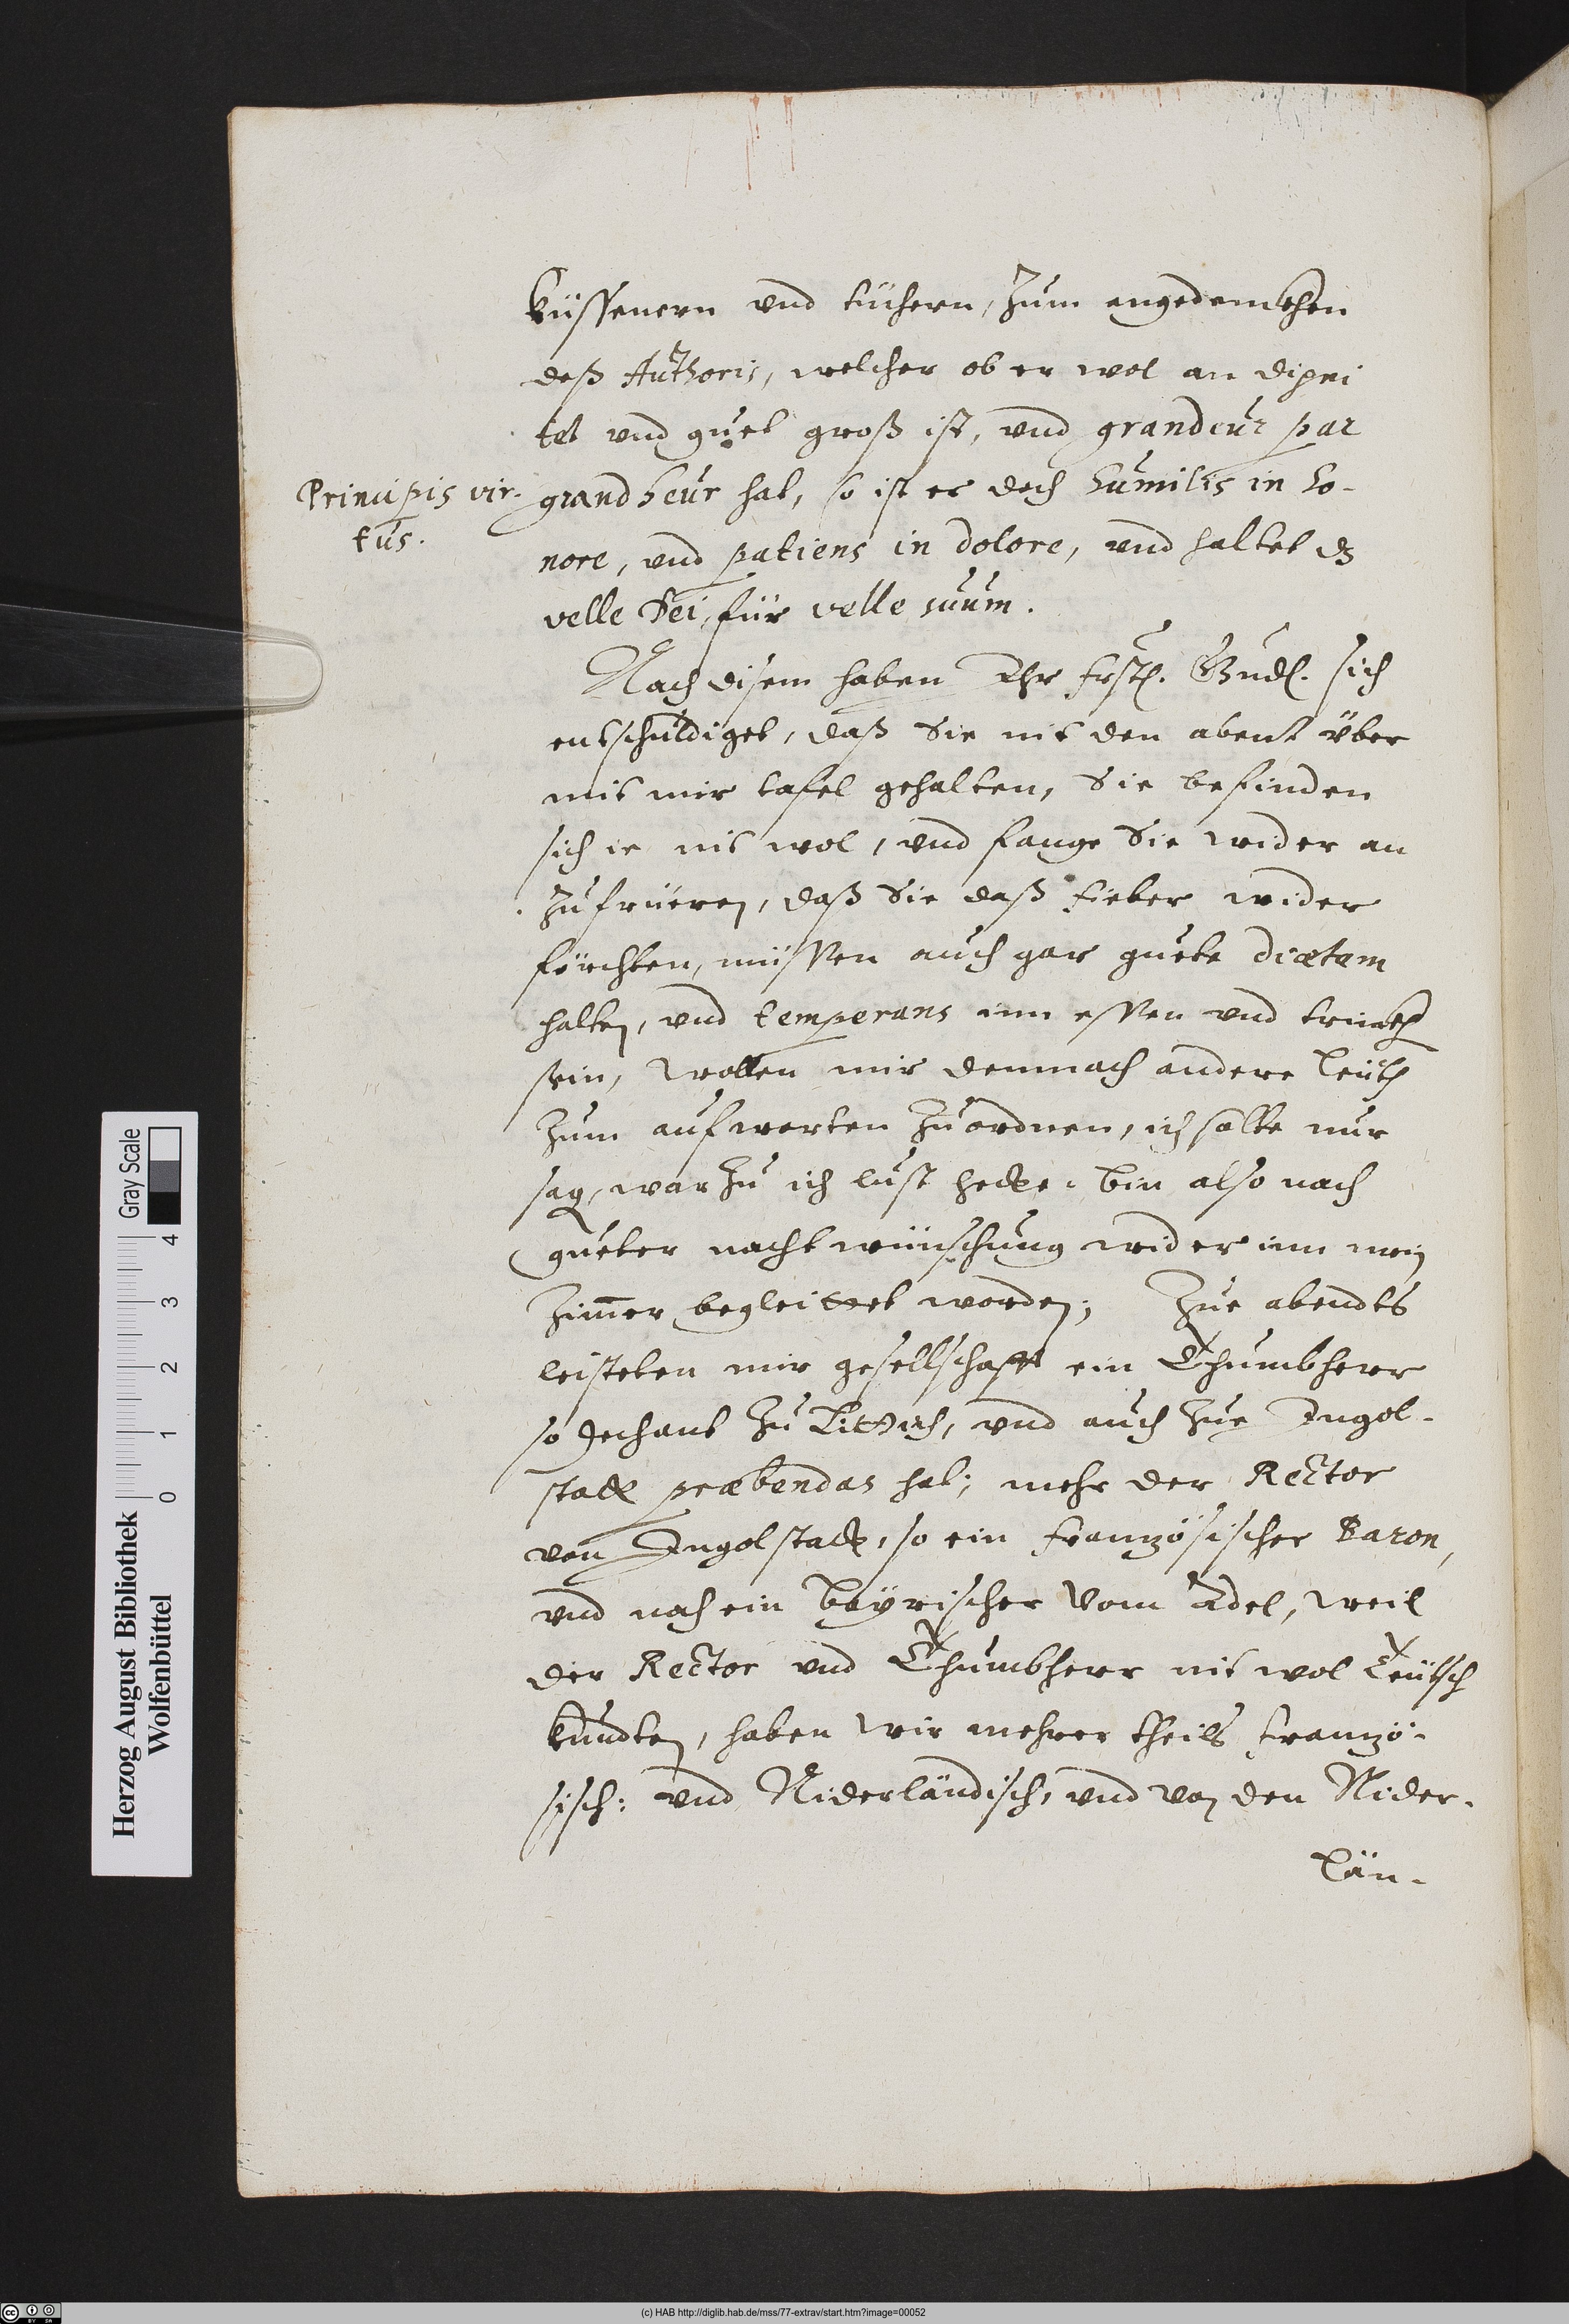 küssenern vnd tüchern, zum angedenckhen
deß Authoris, welcher ob er wol an digni
tet vnd guet groß ist, vnd grandeur par
Principis vir-
tus.
grandheur hat, so ist er doch humilis in ho-
nore, vnd patiens in dolore, vnd haltet dz
velle Dei, für velle suum.
Nach disem haben Ihr frstl. Gndl. sich
entschuldiget, daß Sie nit den abent über
mit mir tafel gehalten, Sie befinden
sich ie nit wol, vnd fange Sie wider an
zu früeren, daß Sie daß fieber wider
förchten, müssen auch gar guete diætam
halten, vnd temperans inn essen vnd trinckh
sein, wollen mir demnach andere leüth
zum aufwarten zu ordnen, ich solte nur
sagen, war zu ich lust hette. bin also nach
gueter nacht wünschung wider inn mein
Zimmer begleittet worden; Zue abendts
leisteten mir gesellschafft ein Thumbherr
so Dechant zu Littich, vnd auch zue Ingol-
statt præbendas hat; mehr der Rector
von Ingolstatt, so ein französischer Baron,
vnd noch ein bayrischer vom Adel, weil
der Rector vnd Thumbherr nit wol Teütsch
kundten, haben wir mehrer theils franzö-
sisch: vnd Niderländisch, vnd von den Nider-
län-
Herzog August Bibliothek
Wolfenbüttel
0 1 2 3 4
Gray Scale
(c) HAB http://diglib.hab.de/mss/77-extrav/start.htm?image=00052